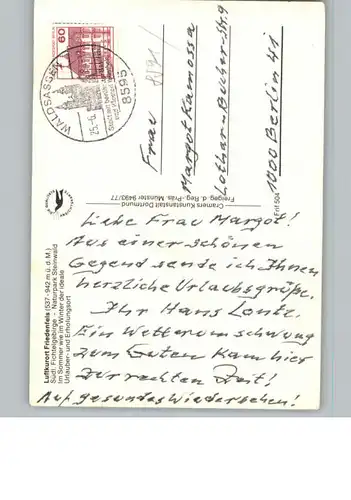 Liebe Frau Margot!
Aus einer schönen
Gegend sende ich Ihnen
herzliche Urlaubsgrüße.
Ihr Hans Lontz.
Ein Wetterumschwung
zum Guten kam hier
zur rechten Zeit!
Auf gesundes Wiedersehen!
Frau
Margot Kamossa
Lothar-Bucher-Str. 9
1000 Berlin 41
Luftkurort Friedenfels (537 - 942 m ü. d. M.)
Südl. Fichtelgebirge - Naturpark Steinwald
Im Sommer wie im Winter der ideale
Urlauber- und Erholungsort
Cramers Kunstanstalt Dortmund
Freigeg. d. Reg.-Präs. Münster 9493/77
Frf 504
WALDSASSEN
8595
60